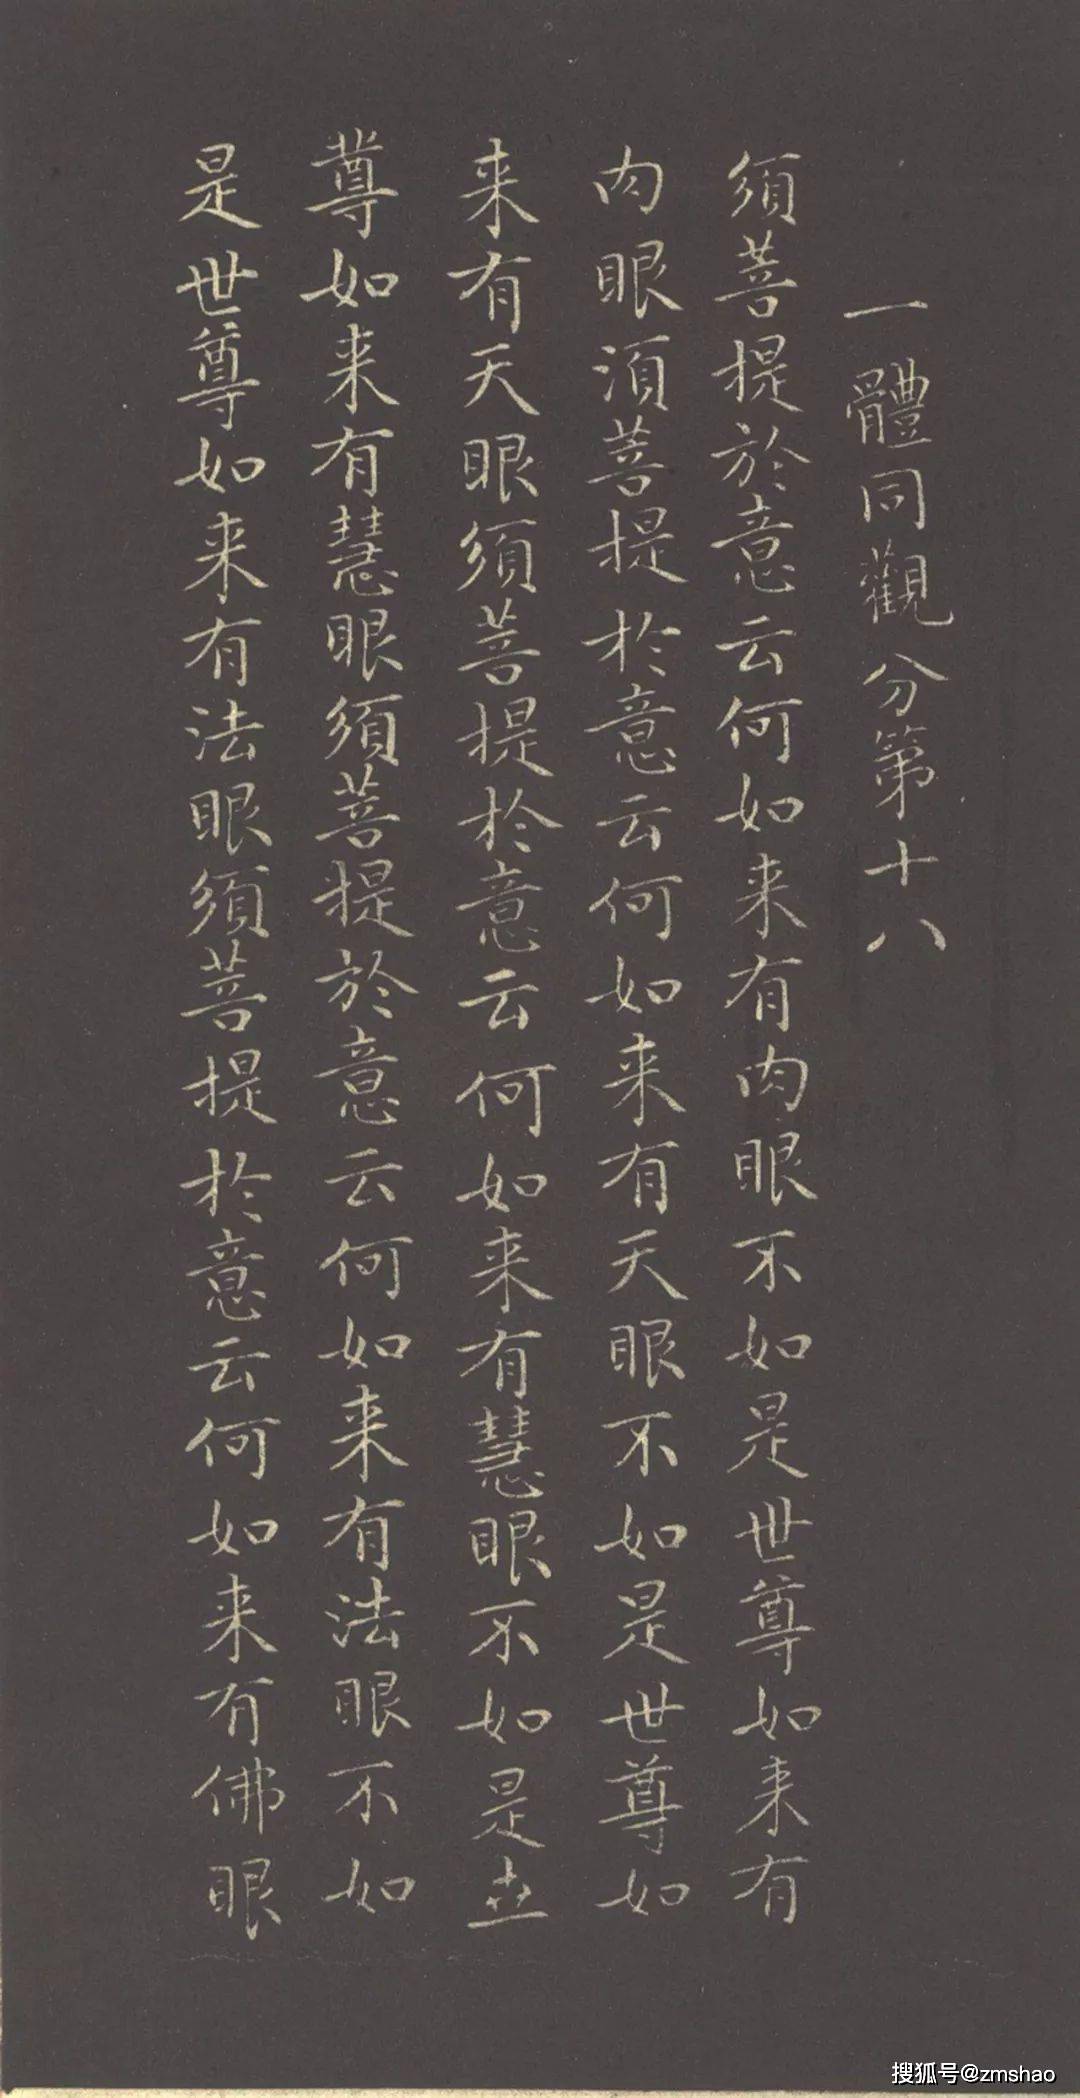 一體同觀分第十八
須菩提於意云何如来有肉眼不如是世尊如来有
肉眼須菩提於意云何如来有天眼不如是世尊如
来有天眼須菩提於意云何如来有慧眼不如是世
尊如来有慧眼須菩提於意云何如来有法眼不如
是世尊如来有法眼須菩提於意云何如来有佛眼
搜狐号@zmshao